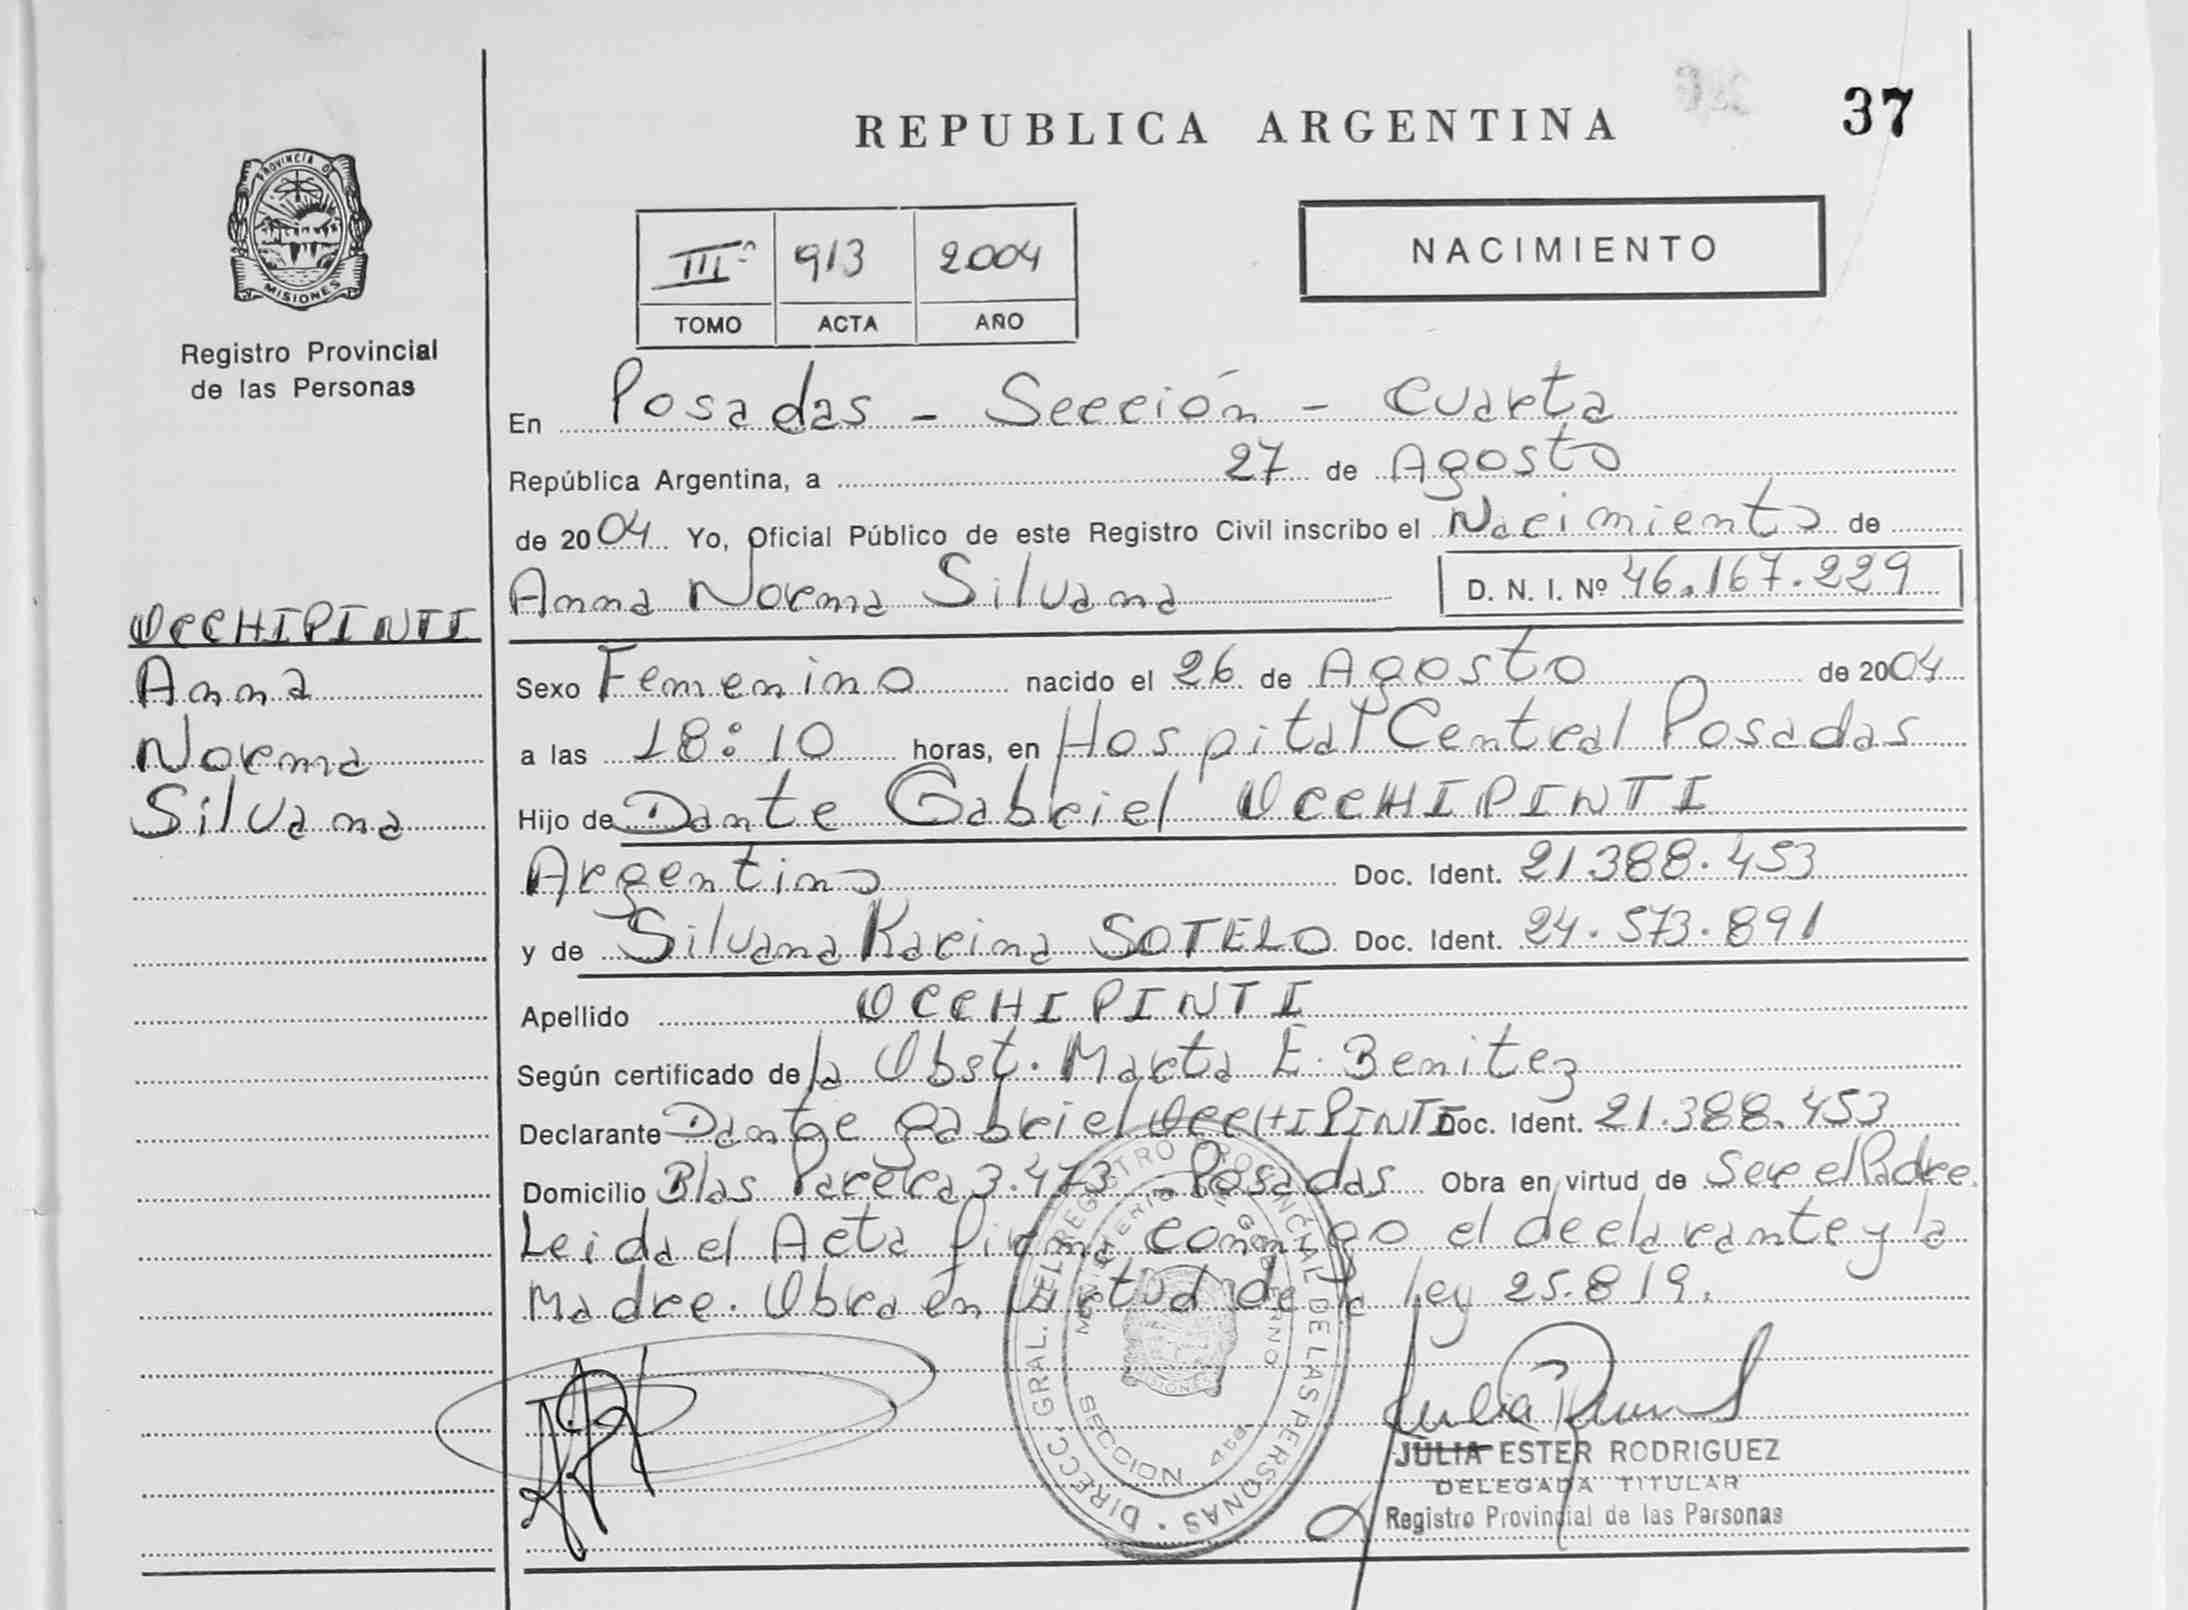 REPUBLICA ARGENTINA
37
PROVINCIA DE
MISIONES
Registro Provincial
de las Personas
IIIº 913 2004
TOMO ACTA AÑO
NACIMIENTO
En Posadas - Sección - Cuarta
República Argentina, a 27 de Agosto
de 2004 Yo, Oficial Público de este Registro Civil inscribo el Nacimiento de
Anna Norma Silvana D. N. I. Nº 46.167.229
OCCHIPINTI
Anna
Norma
Silvana
Sexo Femenino nacido el 26 de Agosto de 2004
a las 18:10 horas, en Hospital Central Posadas
Hijo de Dante Gabriel OCCHIPINTI
Argentino Doc. Ident. 21.388.453
y de Silvana Karina SOTELO Doc. Ident. 24.573.891
Apellido OCCHIPINTI
Según certificado de la Obst. Marta E. Benitez
Declarante Dante Gabriel OCCHIPINTI Doc. Ident. 21.388.453
Domicilio Blas Parera 3.473 - Posadas Obra en virtud de Ser el Padre.
Leida el Acta firma conmigo el declarante y la
Madre. Obra en virtud de la ley 25.819.
DIRECC. GRAL. DEL REGISTRO PROVINCIAL DE LAS PERSONAS
MINISTERIO DE GOBIERNO
MISIONES
SECCION 4ta.
JULIA ESTER RODRIGUEZ
DELEGADA TITULAR
Registro Provincial de las Personas